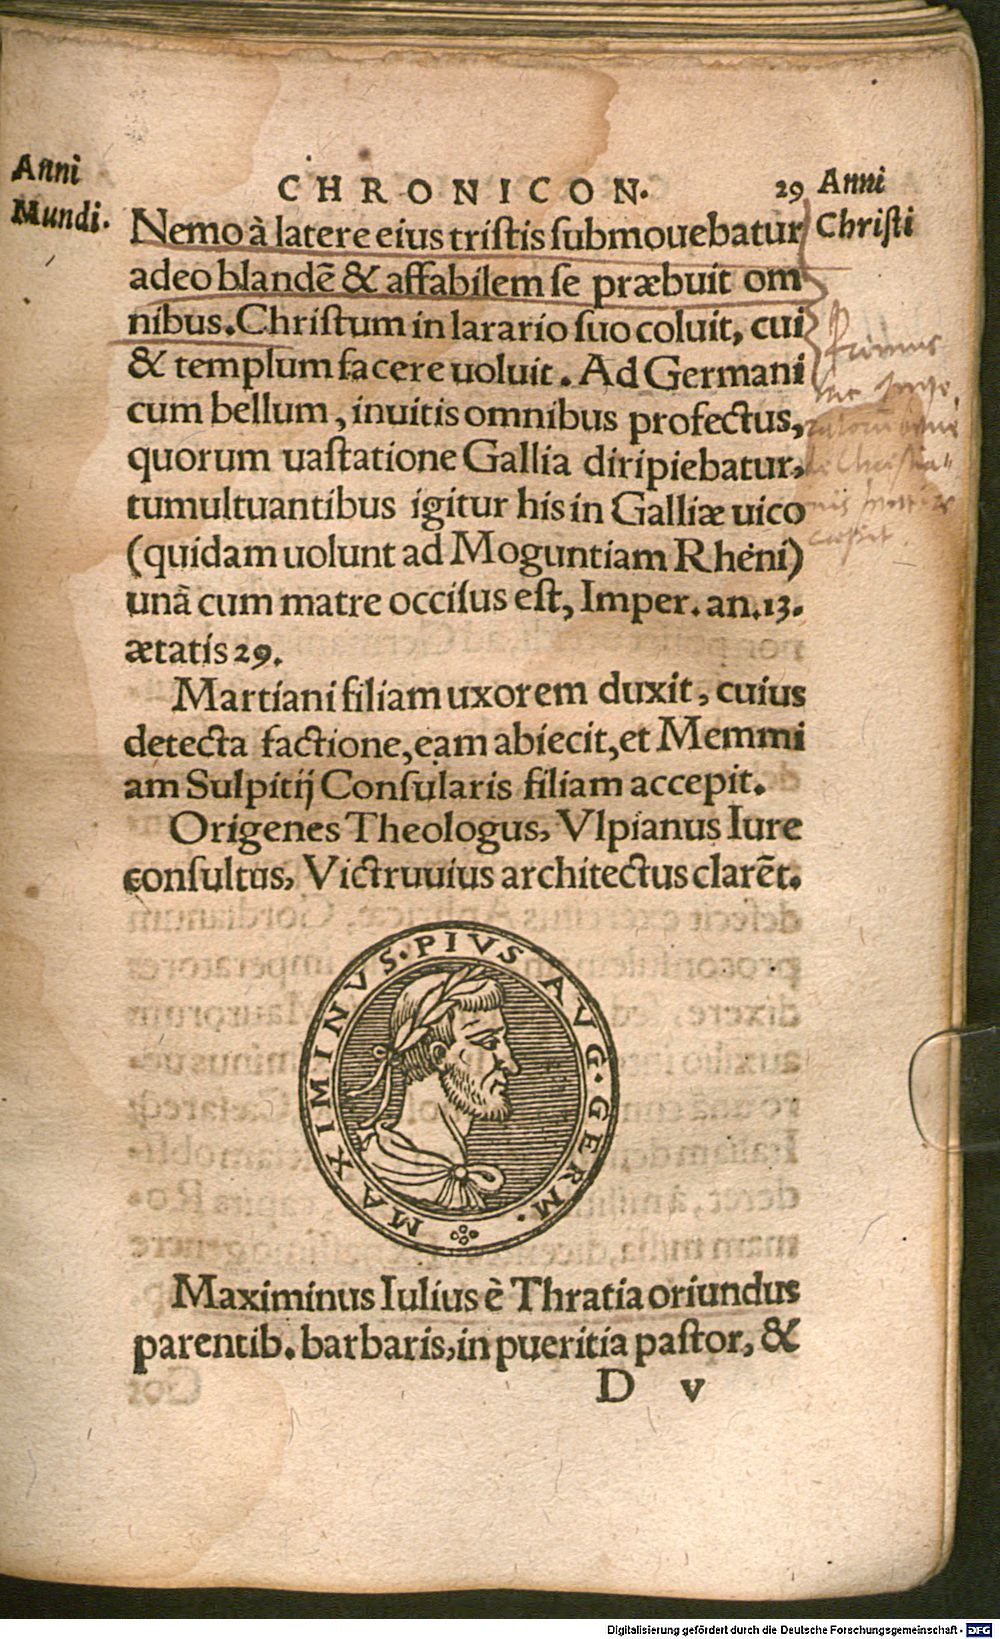 Anni
Mundi.
CHRONICON. 29
Anni
Christi
Nemo à latere eius tristis submouebatur
adeo blandē & affabilem se præbuit om
nibus. Christum in larario suo coluit, cui
& templum facere uoluit. Ad Germani
cum bellum, inuitis omnibus profectus,
quorum uastatione Gallia diripiebatur,
tumultuantibus igitur his in Galliæ uico
(quidam uolunt ad Moguntiam Rheni)
unā cum matre occisus est, Imper. an. 13.
ætatis 29.
Martiani filiam uxorem duxit, cuius
detecta factione, eam abiecit, et Memmi
am Sulpitij Consularis filiam accepit.
Origenes Theologus, Vlpianus Iure
consultus, Victruuius architectus clarēt.
MAXIMINVS. PIVS AVG. GERM.
Maximinus Iulius è Thratia oriundus
parentib. barbaris, in pueritia pastor, &
D v
Primus
hic Impe
Christia
cessit.
Digitalisierung gefördert durch die Deutsche Forschungsgemeinschaft - DFG